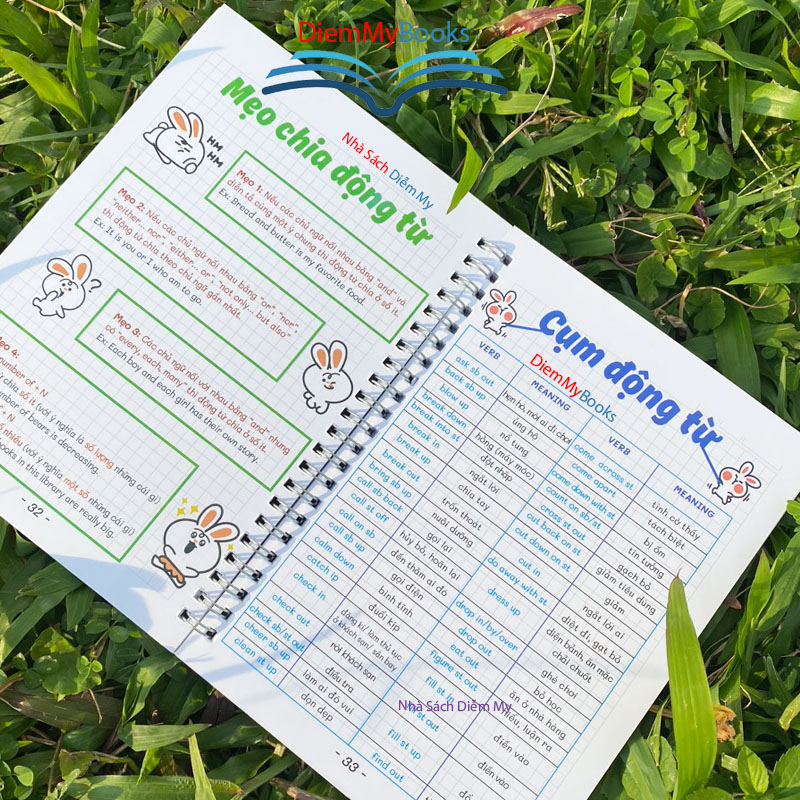 DiemMyBooks
Nhà Sách Diễm My
Mẹo chia động từ
HM
HM
Mẹo 1: Nếu các chủ ngữ nối nhau bằng "and" và
diễn tả cùng một ý chung thì động từ chia ở số ít.
Ex: Bread and butter is my favorite food.
Mẹo 2: Nếu các chủ ngữ nối nhau bằng "or", "nor",
"neither... nor", "either... or", "not only... but also"
thì động từ chia theo chủ ngữ gần nhất.
Ex: It is you or I who am to go.
Mẹo 3: Các chủ ngữ nối với nhau bằng "and" nhưng
có "every, each, many" thì động từ chia ở số ít.
Ex: Each boy and each girl has their own story.
4:
number of + N
chia số ít (với ý nghĩa là số lượng những cái gì)
number of bears is decreasing.
+ N
số nhiều (với ý nghĩa một số những cái gì)
books in this library are really big.
- 32 -
Cụm động từ
DiemMyBooks
VERB
MEANING
VERB
MEANING
ask sb out
hẹn hò, mời ai đi chơi
back sb up
ủng hộ
blow up
nổ tung
break down
hỏng (máy móc)
break into st
đột nhập
break in
ngắt lời
break up
chia tay
break out
trốn thoát
bring sb up
nuôi dưỡng
call sb back
gọi lại
call st off
hủy bỏ, hoãn lại
call on sb
đến thăm ai đó
call sb up
gọi điện
calm down
bình tĩnh
catch up
đuổi kịp
check in
đăng kí/ làm thủ tục
ở khách sạn/ sân bay
check out
rời khách sạn
check sb/st out
điều tra
cheer sb up
làm ai đó vui
clean st up
dọn dẹp
come across st
tình cờ thấy
come apart
tách biệt
come down with st
bị ốm
count on sb/st
tin tưởng
cross st out
gạch bỏ
cut back on st
giảm tiêu dùng
cut down on st
giảm
cut in
ngắt lời ai
do away with st
diệt đi, gạt bỏ
dress up
diện bảnh, ăn mặc
chải chuốt
drop in/by/over
ghé chơi
drop out
bỏ học
eat out
ăn ở nhà hàng
figure st out
hiểu, luận ra
fill st in
điền vào
st out
điền vào
fill st up
find out
Nhà Sách Diễm My
- 33 -